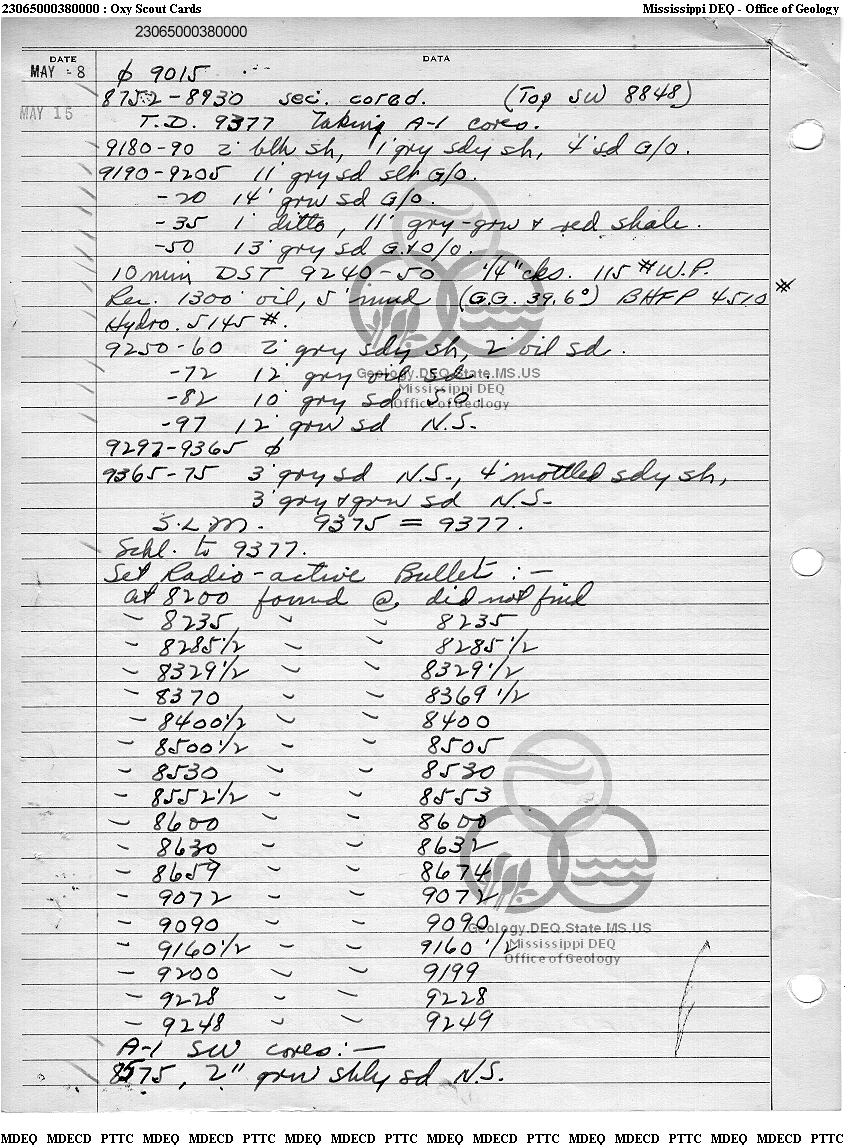 23065000380000 : Oxy Scout Cards Mississippi DEQ - Office of Geology
23065000380000
DATE DATA
MAY - 8 ϕ 9015
8752-8930 sec. cored. (Top SW 8848)
MAY 15 T.D. 9377 Taking A-1 cores.
9180-90 2' blk sh, 1' gry sdy sh, 4' sd G/O.
9190-9205 11' gry sd slt G/O.
-20 14' grn sd G/O.
-35 1' ditto, 11' gry-grn & red shale.
-50 13' gry sd G&O/O.
10 min DST 9240-50 1/4" cks. 115 # W.P.
Rec. 1300' oil, 5' mud (G.G. 39.6°) BHFP 4510 #
Hydro. 5145 #.
9250-60 2' gry sdy sh, 2' oil sd.
-72 12' gry oil sd
-82 10' gry sd S.O.
-97 12' grn sd N.S.
9297-9365 ϕ
9365-75 3' gry sd N.S., 4' mottled sdy sh,
3' gry & grn sd N.S.
S.L.M. 9375 = 9377.
Schl. to 9377.
Set Radio-active Bullet :-
at 8200 found @ did not find
- 8235 " " 8235
- 8285 1/2 " " 8285 1/2
- 8329 1/2 " " 8329 1/2
- 8370 " " 8369 1/2
- 8400 1/2 " " 8400
- 8500 1/2 " " 8505
- 8530 " " 8530
- 8552 1/2 " " 8553
- 8600 " " 8600
- 8630 " " 8632
- 8659 " " 8674
- 9072 " " 9072
- 9090 " " 9090
- 9160 1/2 " " 9160 1/2
- 9200 " " 9199
- 9228 " " 9228
- 9248 " " 9249
A-1 SW cores :-
8575, 2" grn shly sd N.S.
Geology.DEQ.State.MS.US
Mississippi DEQ
Office of Geology
Geology.DEQ.State.MS.US
Mississippi DEQ
Office of Geology
MDEQ MDECD PTTC MDEQ MDECD PTTC MDEQ MDECD PTTC MDEQ MDECD PTTC MDEQ MDECD PTTC MDEQ MDECD PTTC